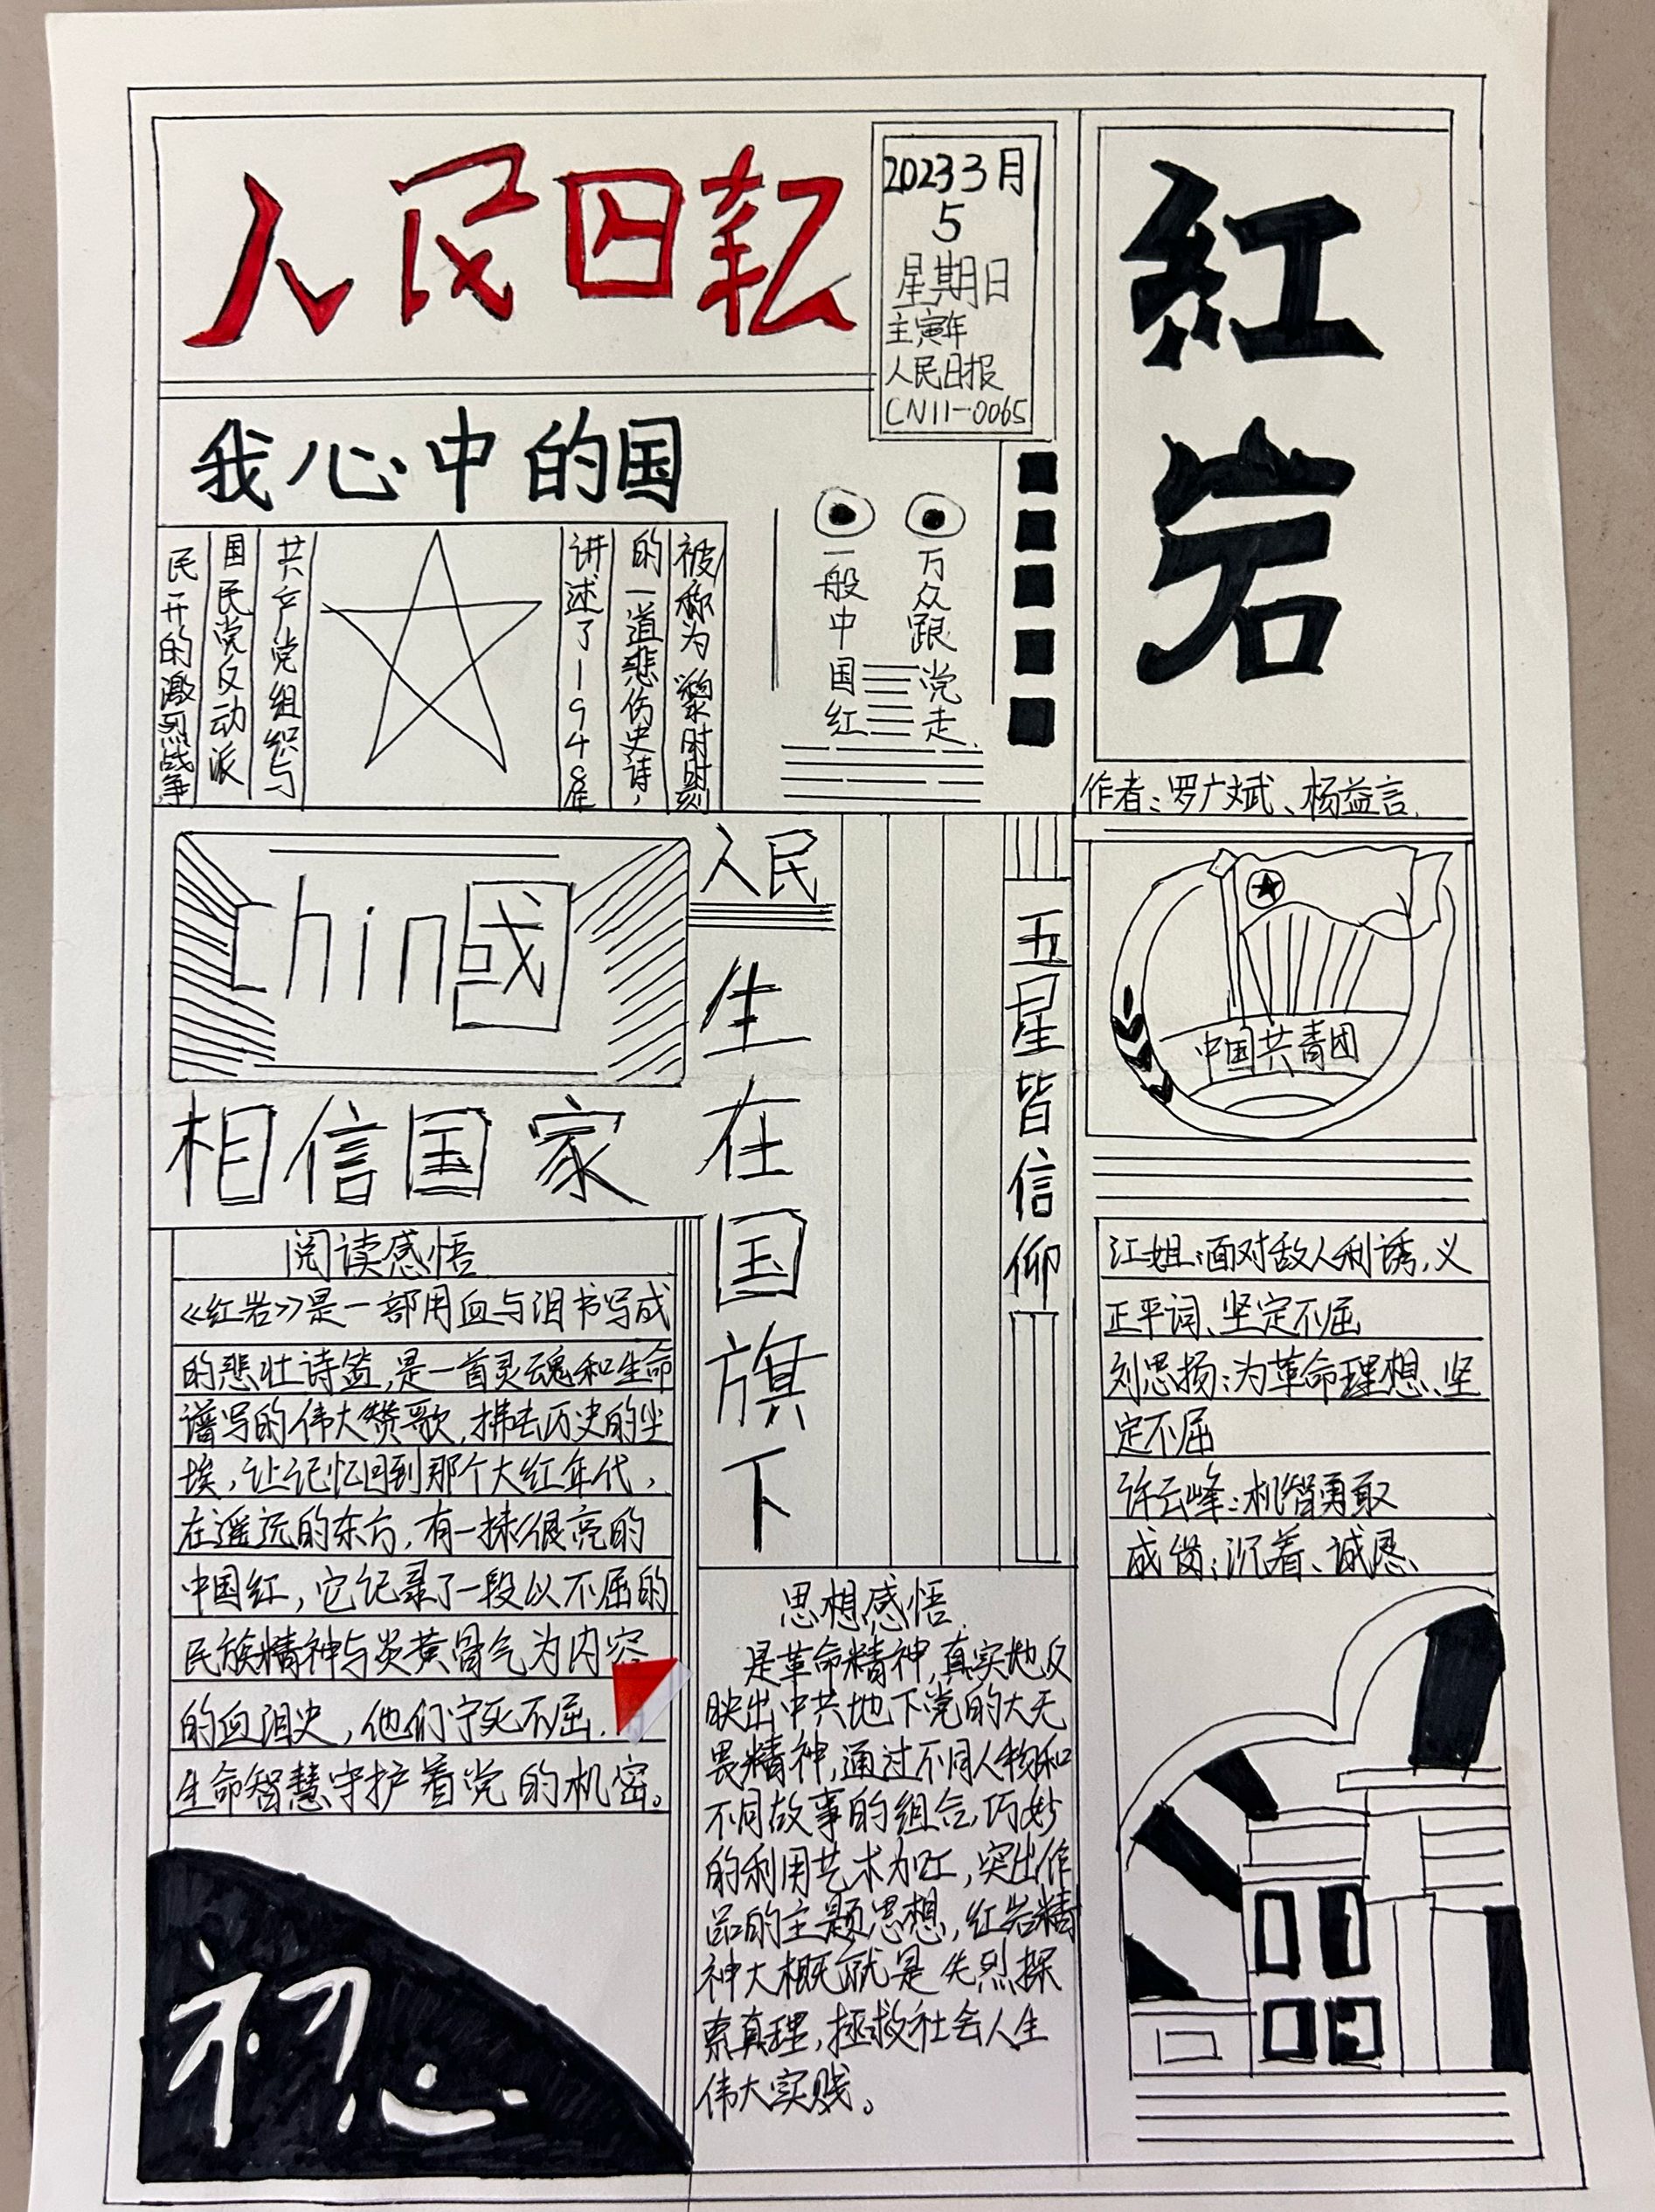 人民日報
2023 3月
5
星期日
主寅年
人民日报
CN11-0065
红
岩
作者：罗广斌、杨益言.
我心中的国
被称为黎时时刻
的一道悲伤史诗，
讲述了1948年
共产党组织与
国民党反动派
民开的激烈战争
万众跟党走.
一般中国红
chin國
相信国家
人民
生在国旗下
五星皆信仰
中国共青团
阅读感悟
《红岩》是一部用血与泪书写成
的悲壮诗篇,是一首灵魂和生命
谱写的伟大赞歌,拂去历史的尘
埃,让记忆回到那个大红年代,
在遥远的东方,有一抹很亮的
中国红,它记录了一段以不屈的
民族精神与炎黄骨气为内容
的血泪史,他们宁死不屈.
生命智慧守护着党的机密。
初心
思想感悟.
是革命精神,真实地反
映出中共地下党的大无
畏精神,通过不同人物和
不同故事的组合,巧妙
的利用艺术加工,突出作
品的主题思想,红岩精
神大概就是先烈探
索真理,拯救社会人生
伟大实践。
江姐:面对敌人利诱,义
正严词、坚定不屈
刘思扬:为革命理想、坚
定不屈
许云峰:机智勇敢
成岗:沉着、诚恳